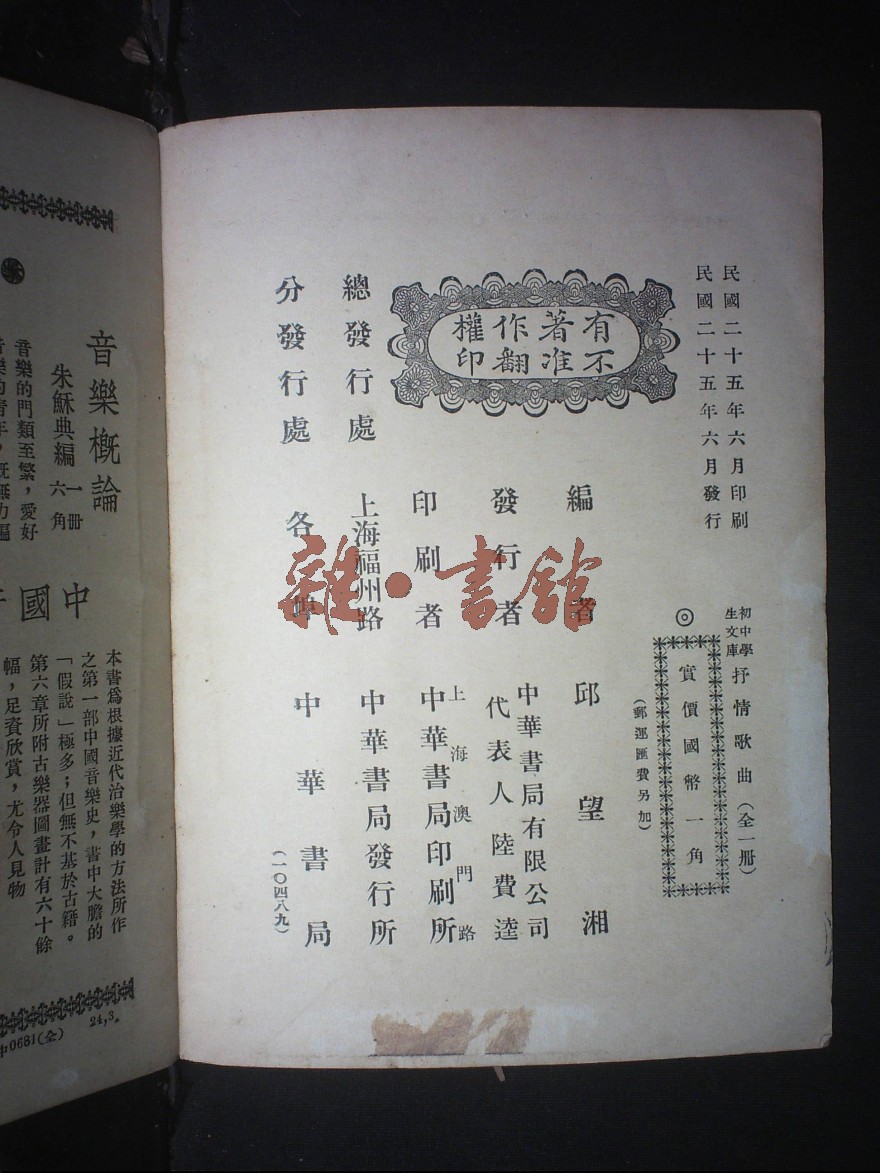 民國二十五年六月印刷
民國二十五年六月發行
初中學
生文庫
抒情歌曲(全一册)
◎
實價國幣一角
(郵運匯費另加)
有著作權
不准翻印
編者 邱望湘
發行者 中華書局有限公司
代表人陸費逵
印刷者 上海澳門路
中華書局印刷所
總發行處 上海福州路 中華書局發行所
分發行處 各埠 中華書局
(一〇四八九)
雜·書館
音樂概論
朱穌典編 一册
六角
音樂的門類至繁,愛好
中國
本書爲根據近代治樂學的方法所作
之第一部中國音樂史,書中大膽的
「假說」極多;但無不基於古籍。
第六章所附古樂器圖畫計有六十餘
幅,足資欣賞,尤令人見物
中0681(全) 24,3.